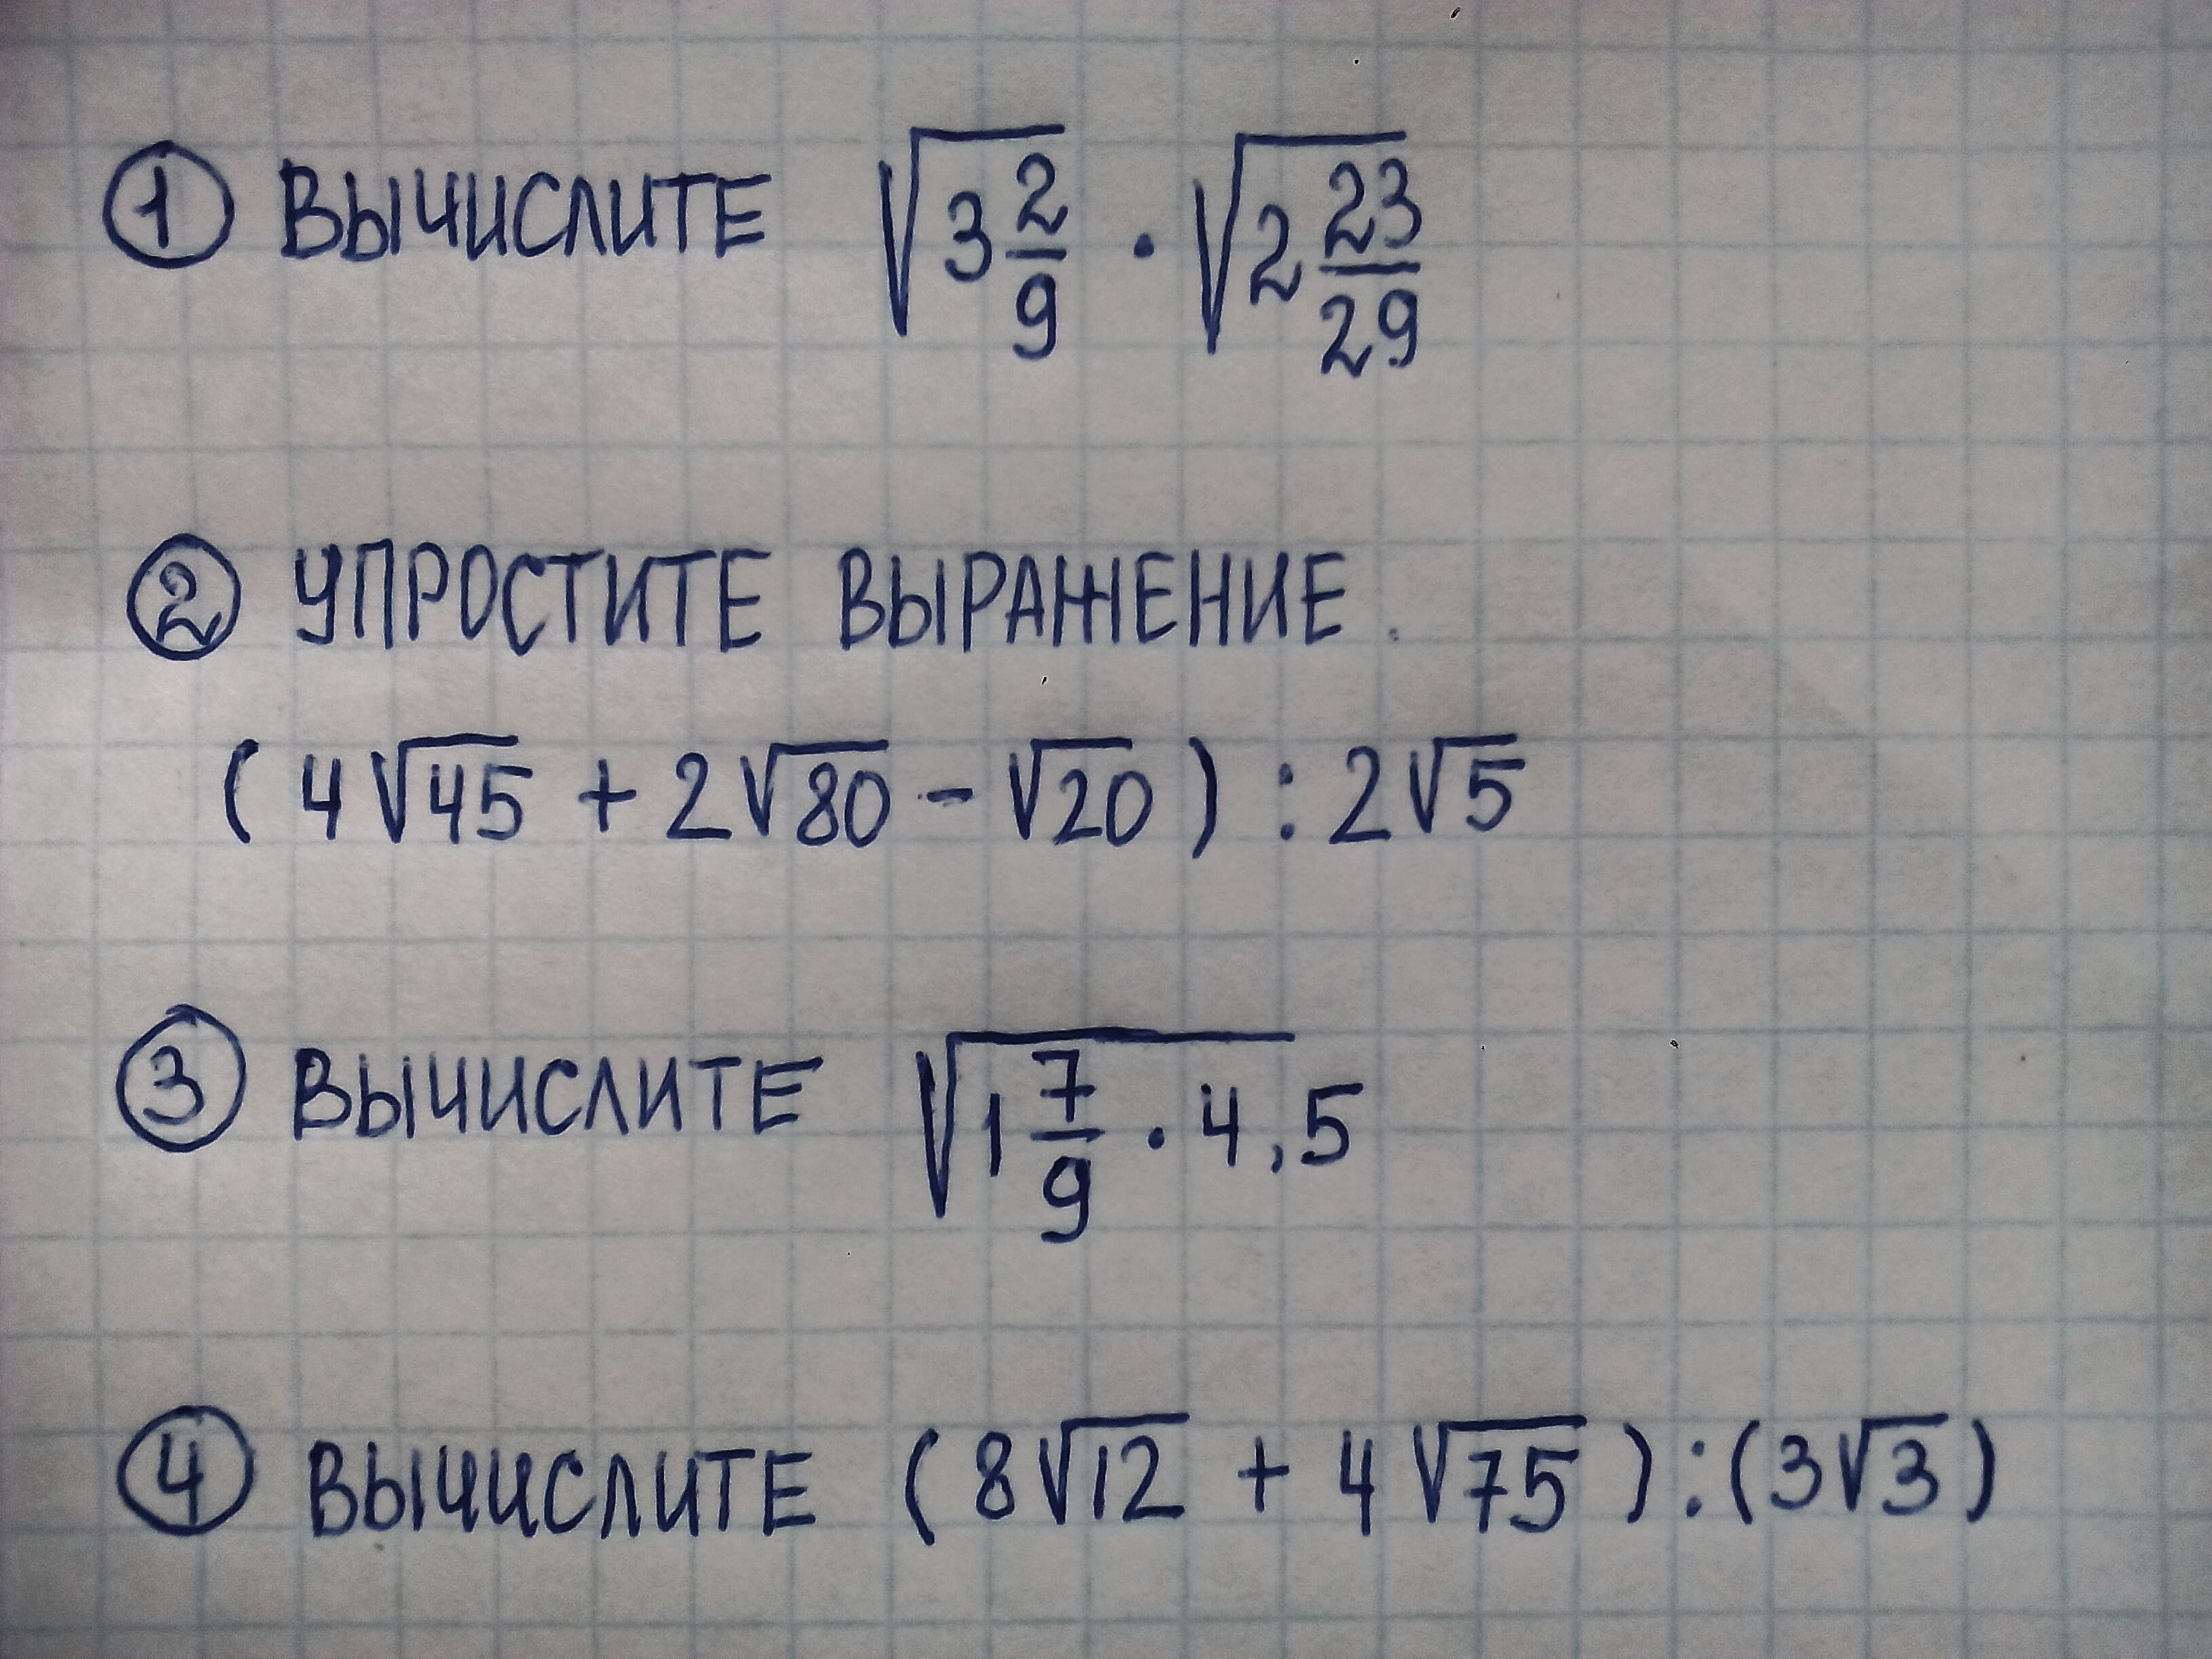 ① ВЫЧИСЛИТЕ √(3 2/9) · √(2 23/29)
② УПРОСТИТЕ ВЫРАЖЕНИЕ.
(4√45 + 2√80 - √20) : 2√5
③ ВЫЧИСЛИТЕ √(1 7/9 · 4,5)
④ ВЫЧИСЛИТЕ (8√12 + 4√75) : (3√3)